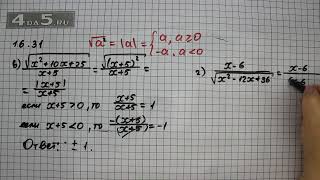 4DA5.RU
16.31
√a² = |a| = { a, a≥0
-a, a<0
в) √(x²+10x+25)/(x+5) = √((x+5)²)/(x+5) =
= |x+5|/(x+5)
если x+5>0, то (x+5)/(x+5) = 1
если x+5<0, то -(x+5)/(x+5) = -1
Ответ: ±1.
г) (x-6)/√(x²-12x+36) = (x-6)/